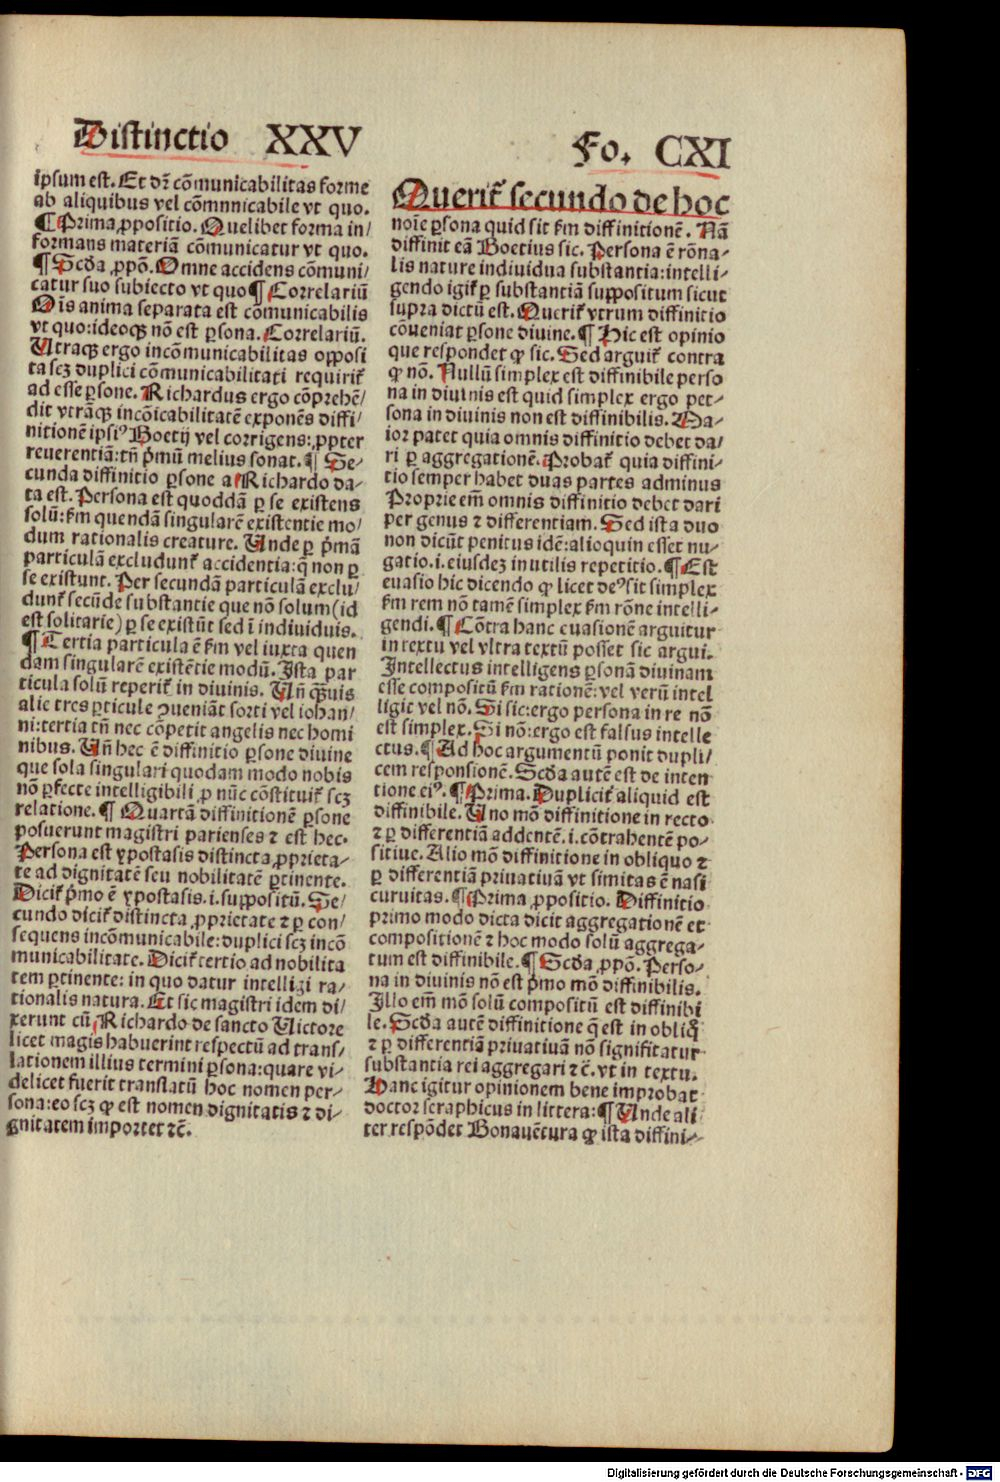 Distinctio XXV
Fo. CXI
ipsum est. Et dr̄ cōmunicabilitas forme
ab aliquibus vel cōmnnicabile vt quo.
¶ Prima ꝓpositio. Quelibet forma in/
formans materiā cōmunicatur vt quo.
¶ Scďa ꝓpō. Omne accidens cōmuni/
catur suo subiecto vt quo ¶ Correlariū
Oīs anima separata est cōmunicabilis
vt quo: ideoqꝫ nō est ꝑsona. Correlariū.
Utraqꝫ ergo incōmunicabilitas opposi
ta scꝫ duplici cōmunicabilitati requirit᷑
ad esse ꝑsone. Richardus ergo cōprehē/
dit vtrāqꝫ incōicabilitatē exponēs diffi/
nitionē ipsiꝰ Boetij vel corrigens: ꝓpter
reuerentiā: tn̄ p̄mū melius sonat. ¶ Se/
cunda diffinitio ꝑsone a Richardo da/
ta est. Persona est quoddā ꝑ se existens
solū: ẜm quendā singularē existentie mo/
dum rationalis creature. Unde ꝑ p̄mā
particulā excludunt᷑ accidentia: q̄ non ꝑ
se existunt. Per secundā particulā exclu/
dunt᷑ secūde substantie que nō solum (id
est solitarie) ꝑ se existūt sed ī indiuiduis.
¶ Tertia particula ē ẜm vel iuxta quen
dam singularē existētie modū. Ista par
ticula solū reperit᷑ in diuinis. Un̄ qꝫuis
alie tres ꝑticule ꝯueniāt sorti vel iohan/
ni: tertia tn̄ nec cōpetit angelis nec homi
nibus. Un̄ hec ē diffinitio ꝑsone diuine
que sola singulari quodam modo nobis
nō ꝑfecte intelligibili, ꝓ nūc cōstituit᷑ scꝫ
relatione. ¶ Quartā diffinitionē ꝑsone
posuerunt magistri parienses ⁊ est hec.
Persona est ypostasis distincta ꝓprieta/
te ad dignitatē seu nobilitatē ꝑtinente.
Dicit᷑ p̄mo ē ypostasis .i. suppositū. Se/
cundo dicit᷑ distincta ꝓprietate ⁊ ꝑ con/
sequens incōmunicabile: duplici scꝫ incō
municabilitate. Dicit᷑ tertio ad nobilita
tem ꝑtinente: in quo datur intelligi ra/
tionalis natura. Et sic magistri idem di/
xerunt cū Richardo de sancto Uictore
licet magis habuerint respectū ad trans/
lationem illius termini ꝑsona: quare vi/
delicet fuerit translatū hoc nomen per/
sona: eo scꝫ ꝙ est nomen dignitatis ⁊ di/
gnitatem importet ⁊c̄.
Querit᷑ secundo de hoc
noīe ꝑsona quid sit ẜm diffinitionē. Nā
diffinit eā Boetius sic. Persona ē rōna/
lis nature indiuidua substantia: intelli/
gendo igit᷑ ꝑ substantiā suppositum sicut
supra dictū est. Querit᷑ vtrum diffinitio
cōueniat ꝑsone diuine. ¶ Hic est opinio
que respondet ꝙ sic. Sed arguit᷑ contra
ꝙ nō. Nullū simplex est diffinibile perso
na in diuinis est quid simplex ergo per/
sona in diuinis non est diffinibilis. Ma/
ior patet quia omnis diffinitio debet da/
ri ꝑ aggregationē. Probat᷑ quia diffini/
tio semper habet duas partes adminus
Proprie em̄ omnis diffinitio debet dari
per genus ⁊ differentiam. Sed ista duo
non dicūt penitus idē: alioquin esset nu/
gatio .i. eiusdeꝫ inutilis repetitio. ¶ Est
euasio hic dicendo ꝙ licet deꝰ sit simplex
ẜm rem nō tamē simplex ẜm rōne intelli/
gendi. ¶ Cōtra hanc euasionē arguitur
in textu vel vltra textū posset sic argui.
Intellectus intelligens ꝑsonā diuinam
esse compositū ẜm rationē: vel verū intel
ligit vel nō. Si sic: ergo persona in re nō
est simplex. Si nō: ergo est falsus intelle
ctus. ¶ Ad hoc argumentū ponit dupli/
cem responsionē. Scďa autē est de inten
tione eiꝰ. ¶ Prima. Duplicit᷑ aliquid est
diffinibile. Uno mō diffinitione in recto
⁊ ꝑ differentiā addentē .i. cōtrahentē po/
sitiue. Alio mō diffinitione in obliquo ⁊
ꝑ differentiā priuatiuā vt simitas ē nasi
curuitas. ¶ Prima ꝓpositio. Diffinitio
primo modo dicta dicit aggregationē et
compositionē ⁊ hoc modo solū aggrega/
tum est diffinibile. ¶ Scďa ꝓpō. Perso/
na in diuinis nō est p̄mo mō diffinibilis.
Illo em̄ mō solū compositū est diffinibi
le. Scďa autē diffinitione q̄ est in obliq̊
⁊ ꝑ differentiā priuatiuā nō signifitatur
substantia rei aggregari ⁊c̄. vt in textu.
Hanc igitur opinionem bene improbat
doctor seraphicus in littera: ¶ Unde ali/
ter respōdet Bonauētura ꝙ ista diffini/
Digitalisierung gefördert durch die Deutsche Forschungsgemeinschaft - DFG